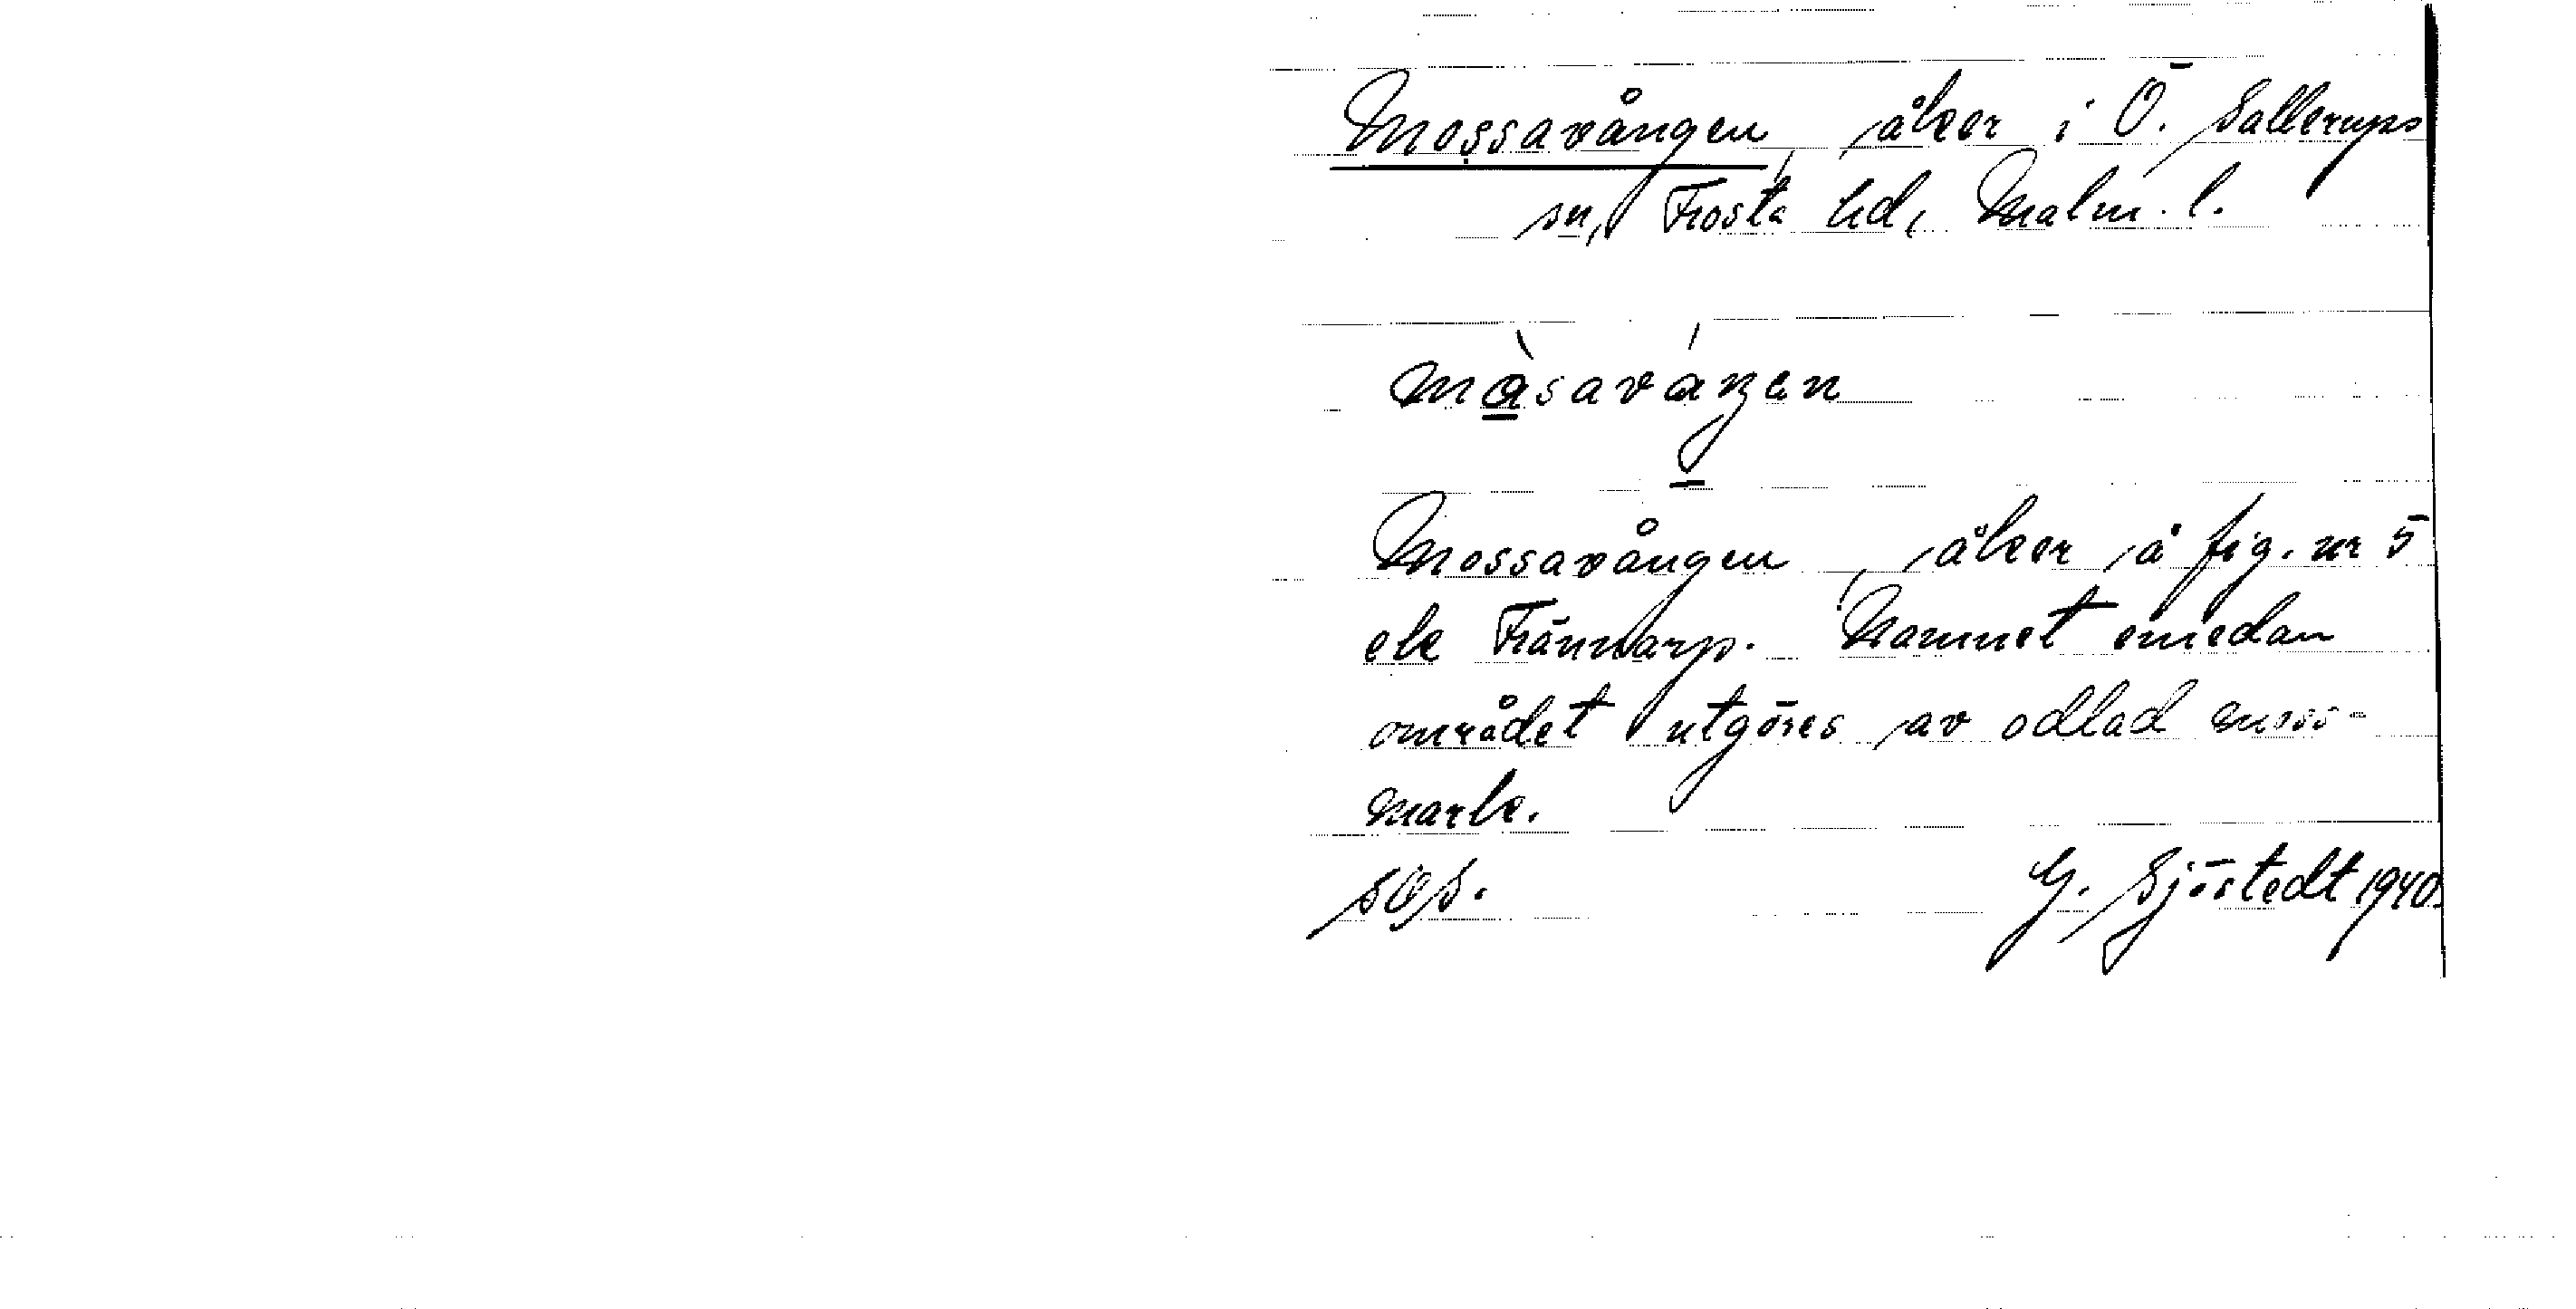 Mossavången, åker i Ö. Sallerups
sn, Frosta hd, Malm. l.
màsaváŋen
Mossavången, åker å fig. nr 5
ek Frännarp. Namnet emedan
området utgöres av odlad moss-
mark.
G. Sjöstedt 1940.